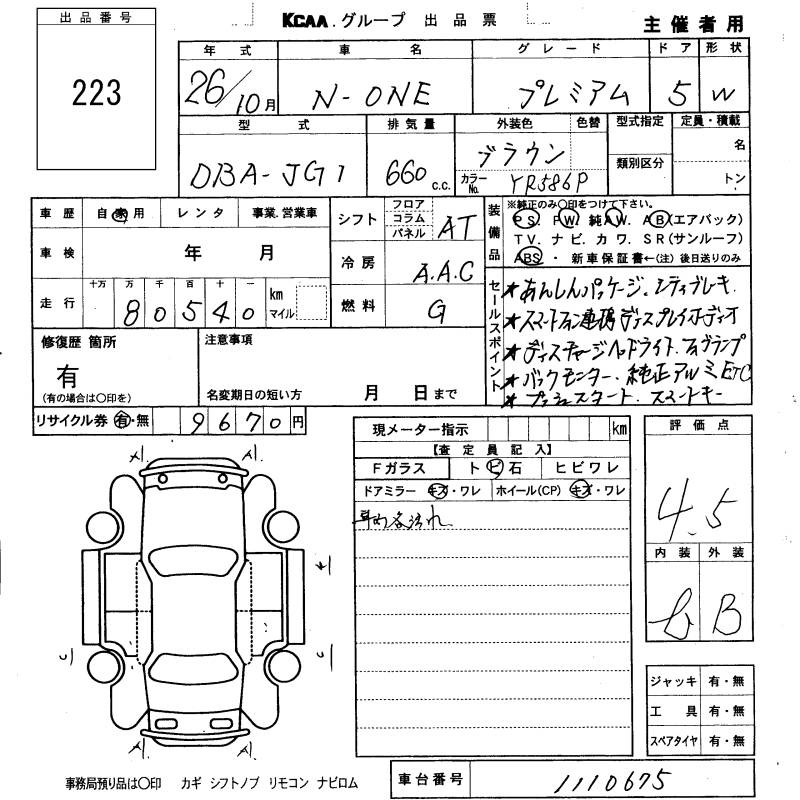 出品番号
223
KCAA.グループ 出品票
主催者用
年式 車名 グレード ドア 形状
26/10月 N-ONE プレミアム 5 W
型式 排気量 外装色 色替 型式指定 定員・積載
DBA-JG1 660c.c. ブラウン 類別区分 名
カラーNo. YR586P トン
車歴 自家用 レンタ 事業.営業車
車検 年 月
走行 十万 万 千 百 十 一 km マイル
80540
シフト フロア コラム パネル AT
冷房 A.A.C
燃料 G
装備品
※純正のみ〇印をつけて下さい。
PS. PW. 純AW. AB(エアバック)
TV. ナビ. カワ. SR(サンルーフ)
ABS ・ 新車保証書←(注) 後日送りのみ
セールスポイント
★あんしんパッケージ. シティブレーキ.
★スマートフォン連携ディスプレイオーディオ
★ディスチャージヘッドライト. フォグランプ
★バックモニター. 純正AW ETC
★プッシュスタート. スマートキー
修復歴 箇所
有
(有の場合は〇印を)
注意事項
名変期日の短い方 月 日まで
リサイクル券 有・無 9670円
現メーター指示 km
【査定員記入】
Fガラス トビ石 ヒビワレ
ドアミラー キズ・ワレ ホイール(CP) キズ・ワレ
車内汚れ
評価点
4.5
内装 外装
b B
A1.
A1.
A1.
A1.
ジャッキ 有・無
工具 有・無
スペアタイヤ 有・無
事務局預り品は〇印 カギ シフトノブ リモコン ナビロム
車台番号 1110675